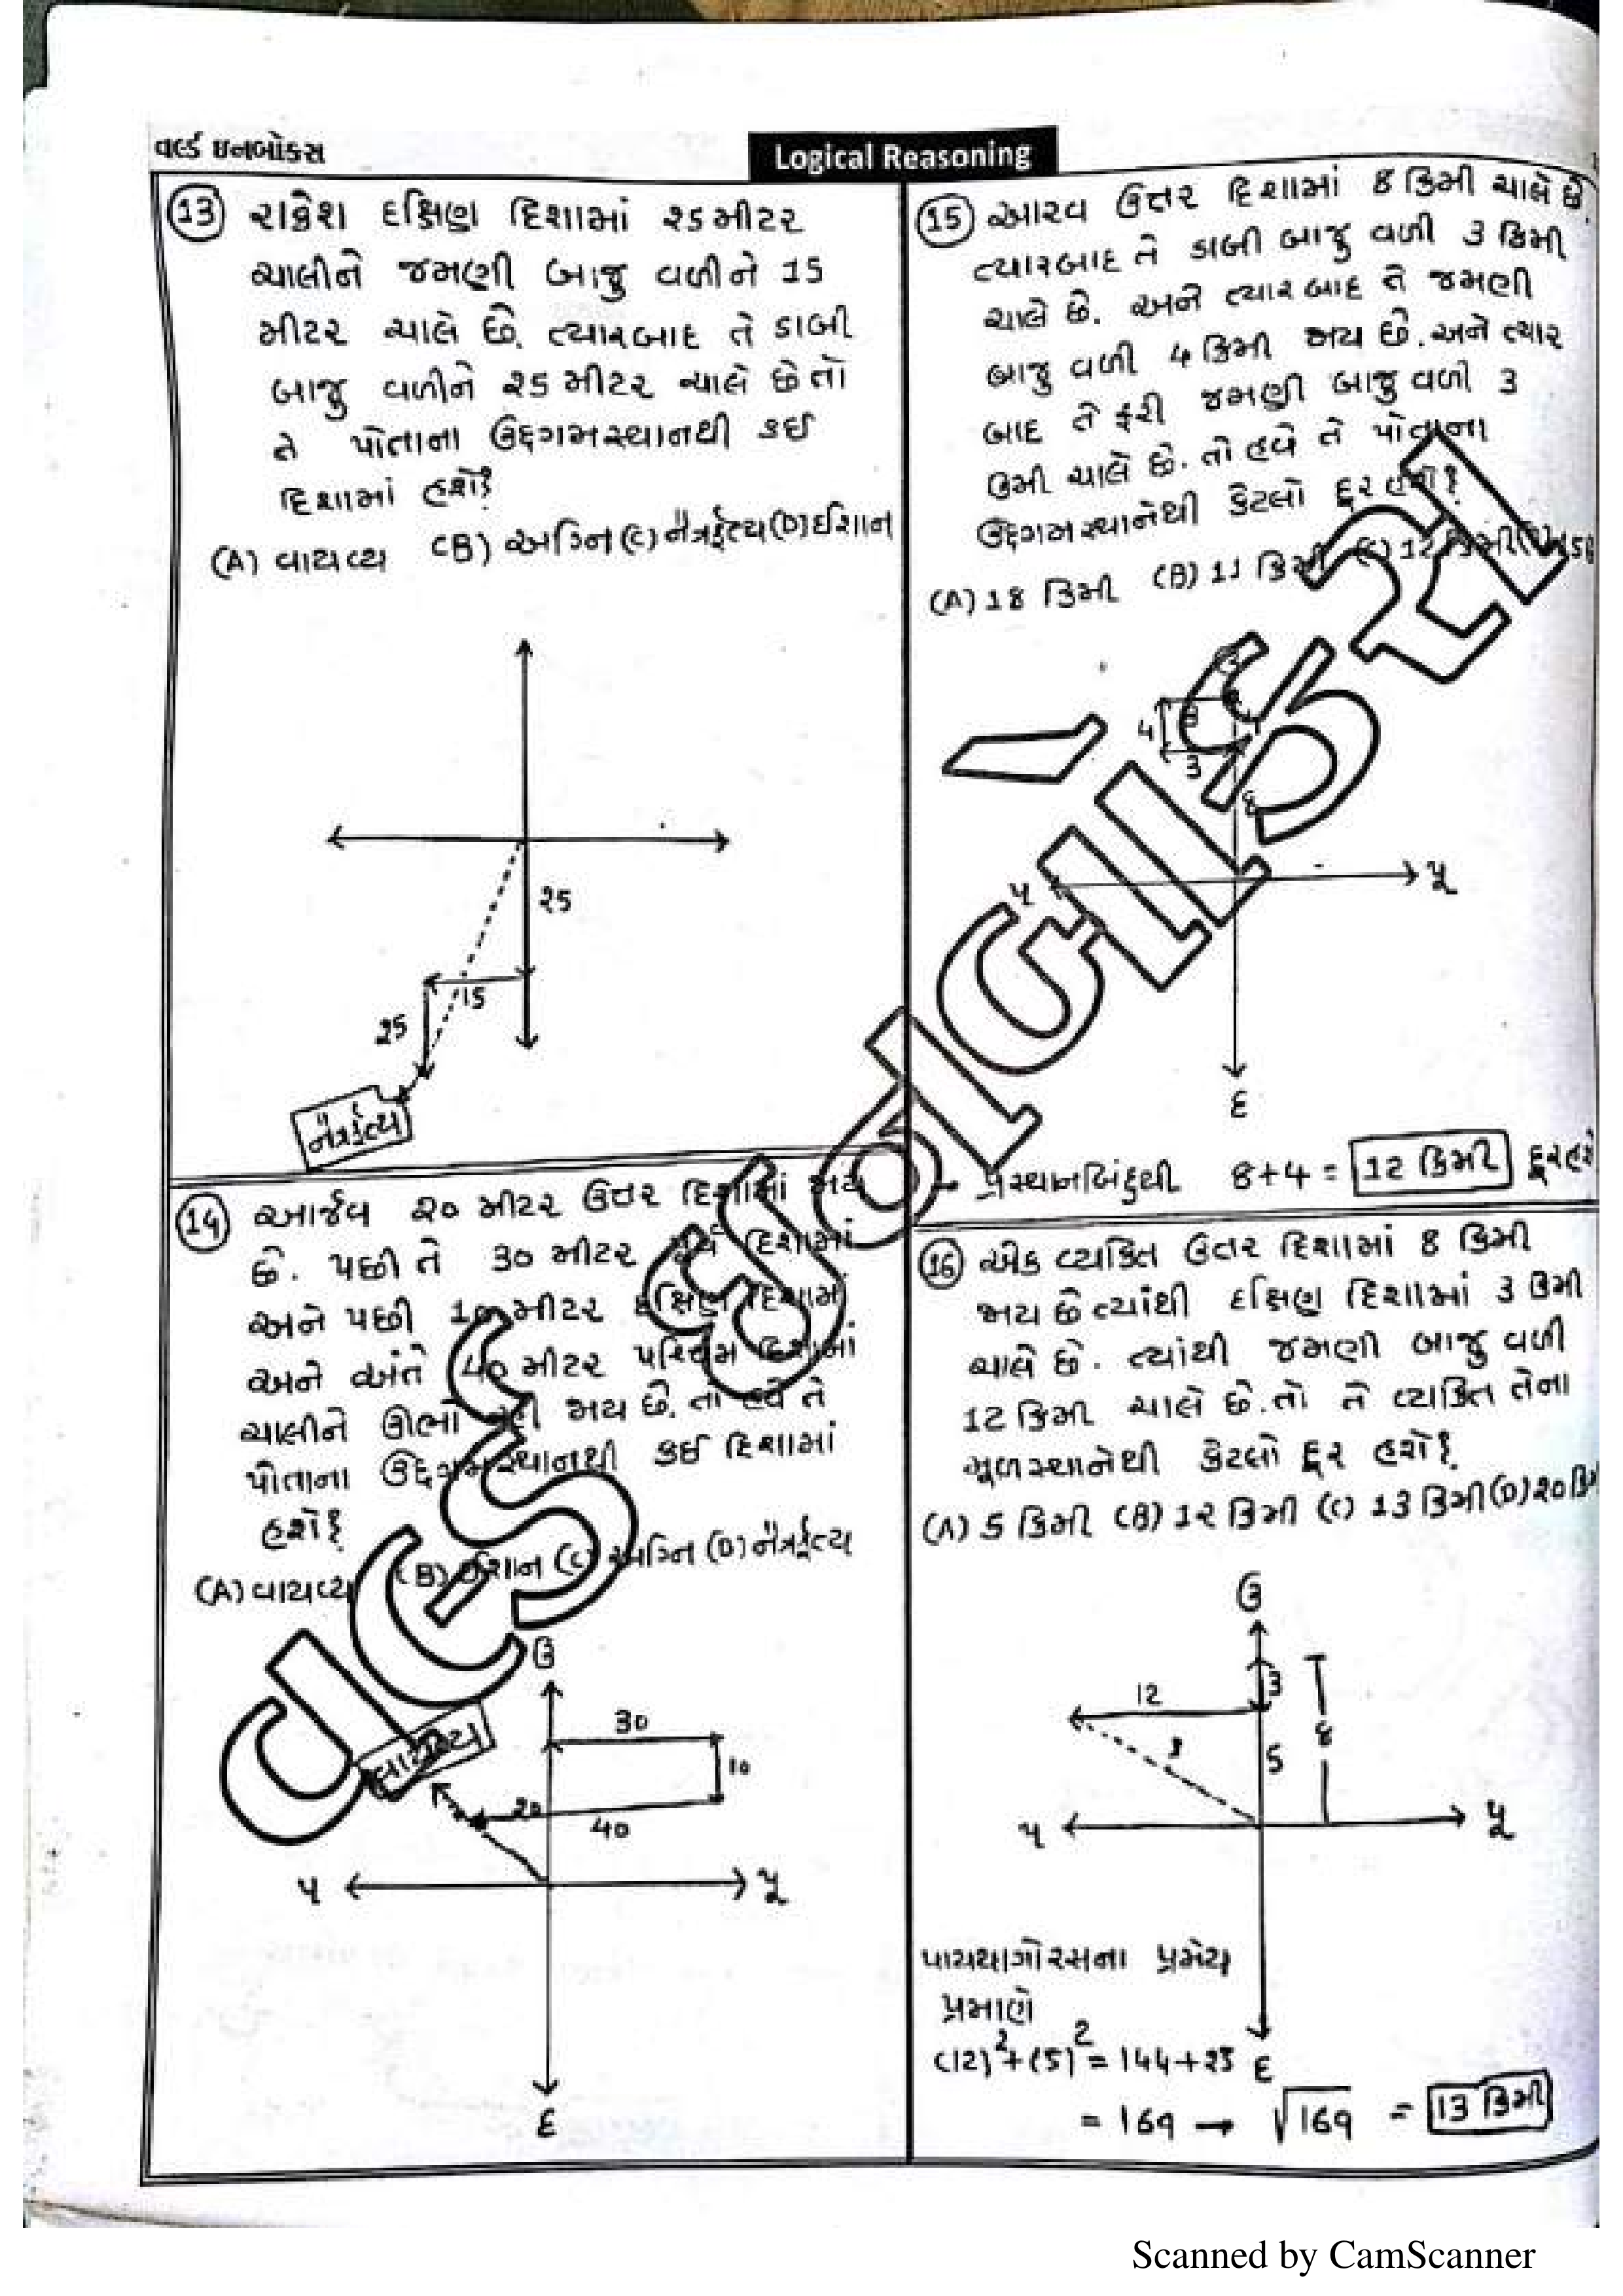 વર્લ્ડ ઇનબોક્સ
Logical Reasoning
(13) રાકેશ દક્ષિણ દિશામાં ૨5 મીટર
ચાલીને જમણી બાજુ વળીને 15
મીટર ચાલે છે. ત્યારબાદ તે ડાબી
બાજુ વળીને ૨5 મીટર ચાલે છે તો
તે પોતાના ઉદ્દગમસ્થાનથી કઈ
દિશામાં હશે?
(A) વાયવ્ય (B) અગ્નિ (C) નૈઋત્ય (D) ઈશાન
૨5
15
૨5
નૈઋત્ય
(14) આર્જવ ૨૦ મીટર ઉત્તર દિશામાં જાય
છે. પછી તે 30 મીટર પૂર્વ દિશામાં
અને પછી 10 મીટર દક્ષિણ દિશામાં
અને અંતે 40 મીટર પશ્ચિમ દિશામાં
ચાલીને ઊભો રહી જાય છે. તો હવે તે
પોતાના ઉદ્દગમસ્થાનથી કઈ દિશામાં
હશે?
(A) વાયવ્ય (B) ઈશાન (C) અગ્નિ (D) નૈઋત્ય
ઉ
30
10
વાયવ્ય
૨૦
40
પ
પૂ
દ
(15) આરવ ઉત્તર દિશામાં 8 કિમી ચાલે છે.
ત્યારબાદ તે ડાબી બાજુ વળી 3 કિમી
ચાલે છે. અને ત્યારબાદ તે જમણી
બાજુ વળી 4 કિમી જાય છે. અને ત્યાર
બાદ તે ફરી જમણી બાજુ વળી 3
કિમી ચાલે છે. તો હવે તે પોતાના
ઉદ્દગમસ્થાનેથી કેટલો દૂર હશે?
(A) 18 કિમી (B) 11 કિમી (C) 12 કિમી (D)
ઉ
3
4
3
8
પ
પૂ
દ
→ પ્રસ્થાનબિંદુથી 8+4 = 12 કિમી દૂર હશે
(16) એક વ્યકિત ઉત્તર દિશામાં 8 કિમી
જાય છે ત્યાંથી દક્ષિણ દિશામાં 3 કિમી
ચાલે છે. ત્યાંથી જમણી બાજુ વળી
12 કિમી ચાલે છે. તો તે વ્યકિત તેના
મૂળસ્થાનેથી કેટલો દૂર હશે?
(A) 5 કિમી (B) 1૨ કિમી (C) 13 કિમી (D) ૨૦ કિમી
ઉ
12
3
8
?
5
પ
પૂ
પાયથાગોરસના પ્રમેય
પ્રમાણે
(12)² + (5)² = 144 + ૨5
દ
= 169 → √169 = 13 કિમી
Scanned by CamScanner